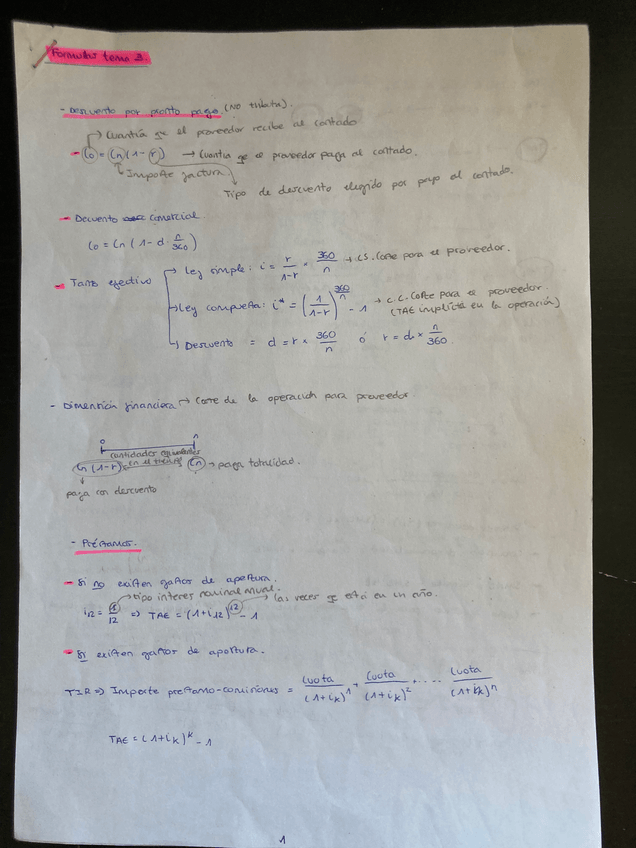 Formulas tema 3
- Descuento por pronto pago. (NO titulata).
→ Cuantía qe el proveedor recibe al contado
- C₀ = Cn (1 - r) → Cuantía qe el proveedor paga al contado.
Importe factura.
Tipo de descuento elegido por pago al contado.
- Decuento comercial
C₀ = Cn (1 - d · n/360)
- Tanto efectivo
→ Ley simple: i = r/1-r · 360/n → C.S. Coste para el proveedor.
→ Ley compuesta: i* = (1/1-r)^360/n - 1 → C.C. Coste para el proveedor.
(TAE implícita en la operación)
→ Descuento = d = r × 360/n ó r = d × n/360.
- Dimensión financiera → Coste de la operación para proveedor
0 n
cantidades equivalentes
Cn (1-r) = en el tiempo = Cn → paga totalidad.
↓
paga con descuento
- Préstamos.
- Si no existen gastos de apertura.
→ tipo interes nominal anual. → las veces qe está en un año.
i12 = /12 => TAE = (1+i12)^12 - 1
- Si existen gastos de apertura.
TIR => Importe prestamo-comisiones = Cuota/(1+ik)^1 + Cuota/(1+ik)^2 + .... Cuota/(1+ik)^n
TAE = (1+ik)^k - 1
1